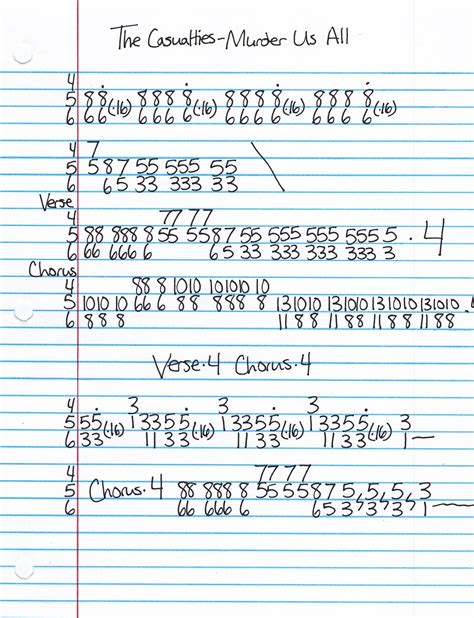 The Casualties-Murder Us All
4
5 88(·16) 888 8(·16) 888 8(·16) 888 8(·16)
6 66 666 6 666 6 666 6
4 7
5 587 55 555 55
6 65 33 333 33
Verse
4 77 77
5 88 888 8 55 5587 55 555 555 555 5 · 4
6 66 666 6 65 33 333 333 333 3
Chorus
4 88 8 1010 1010 10 10
5 1010 10 66 6 88 888 8 131010 131010 131010 131010
6 88 8 11 88 11 88 11 88 11 88
Verse·4 Chorus·4
4 3 3 3 3
5 55(·16) 13355(·16) 13355(·16) 13355(·16) 3
6 33 1133 1133 1133 1
4 77 77
5 Chorus·4 88 888 8 55 55875,5,5,3
6 66 666 6 653 3 3 1